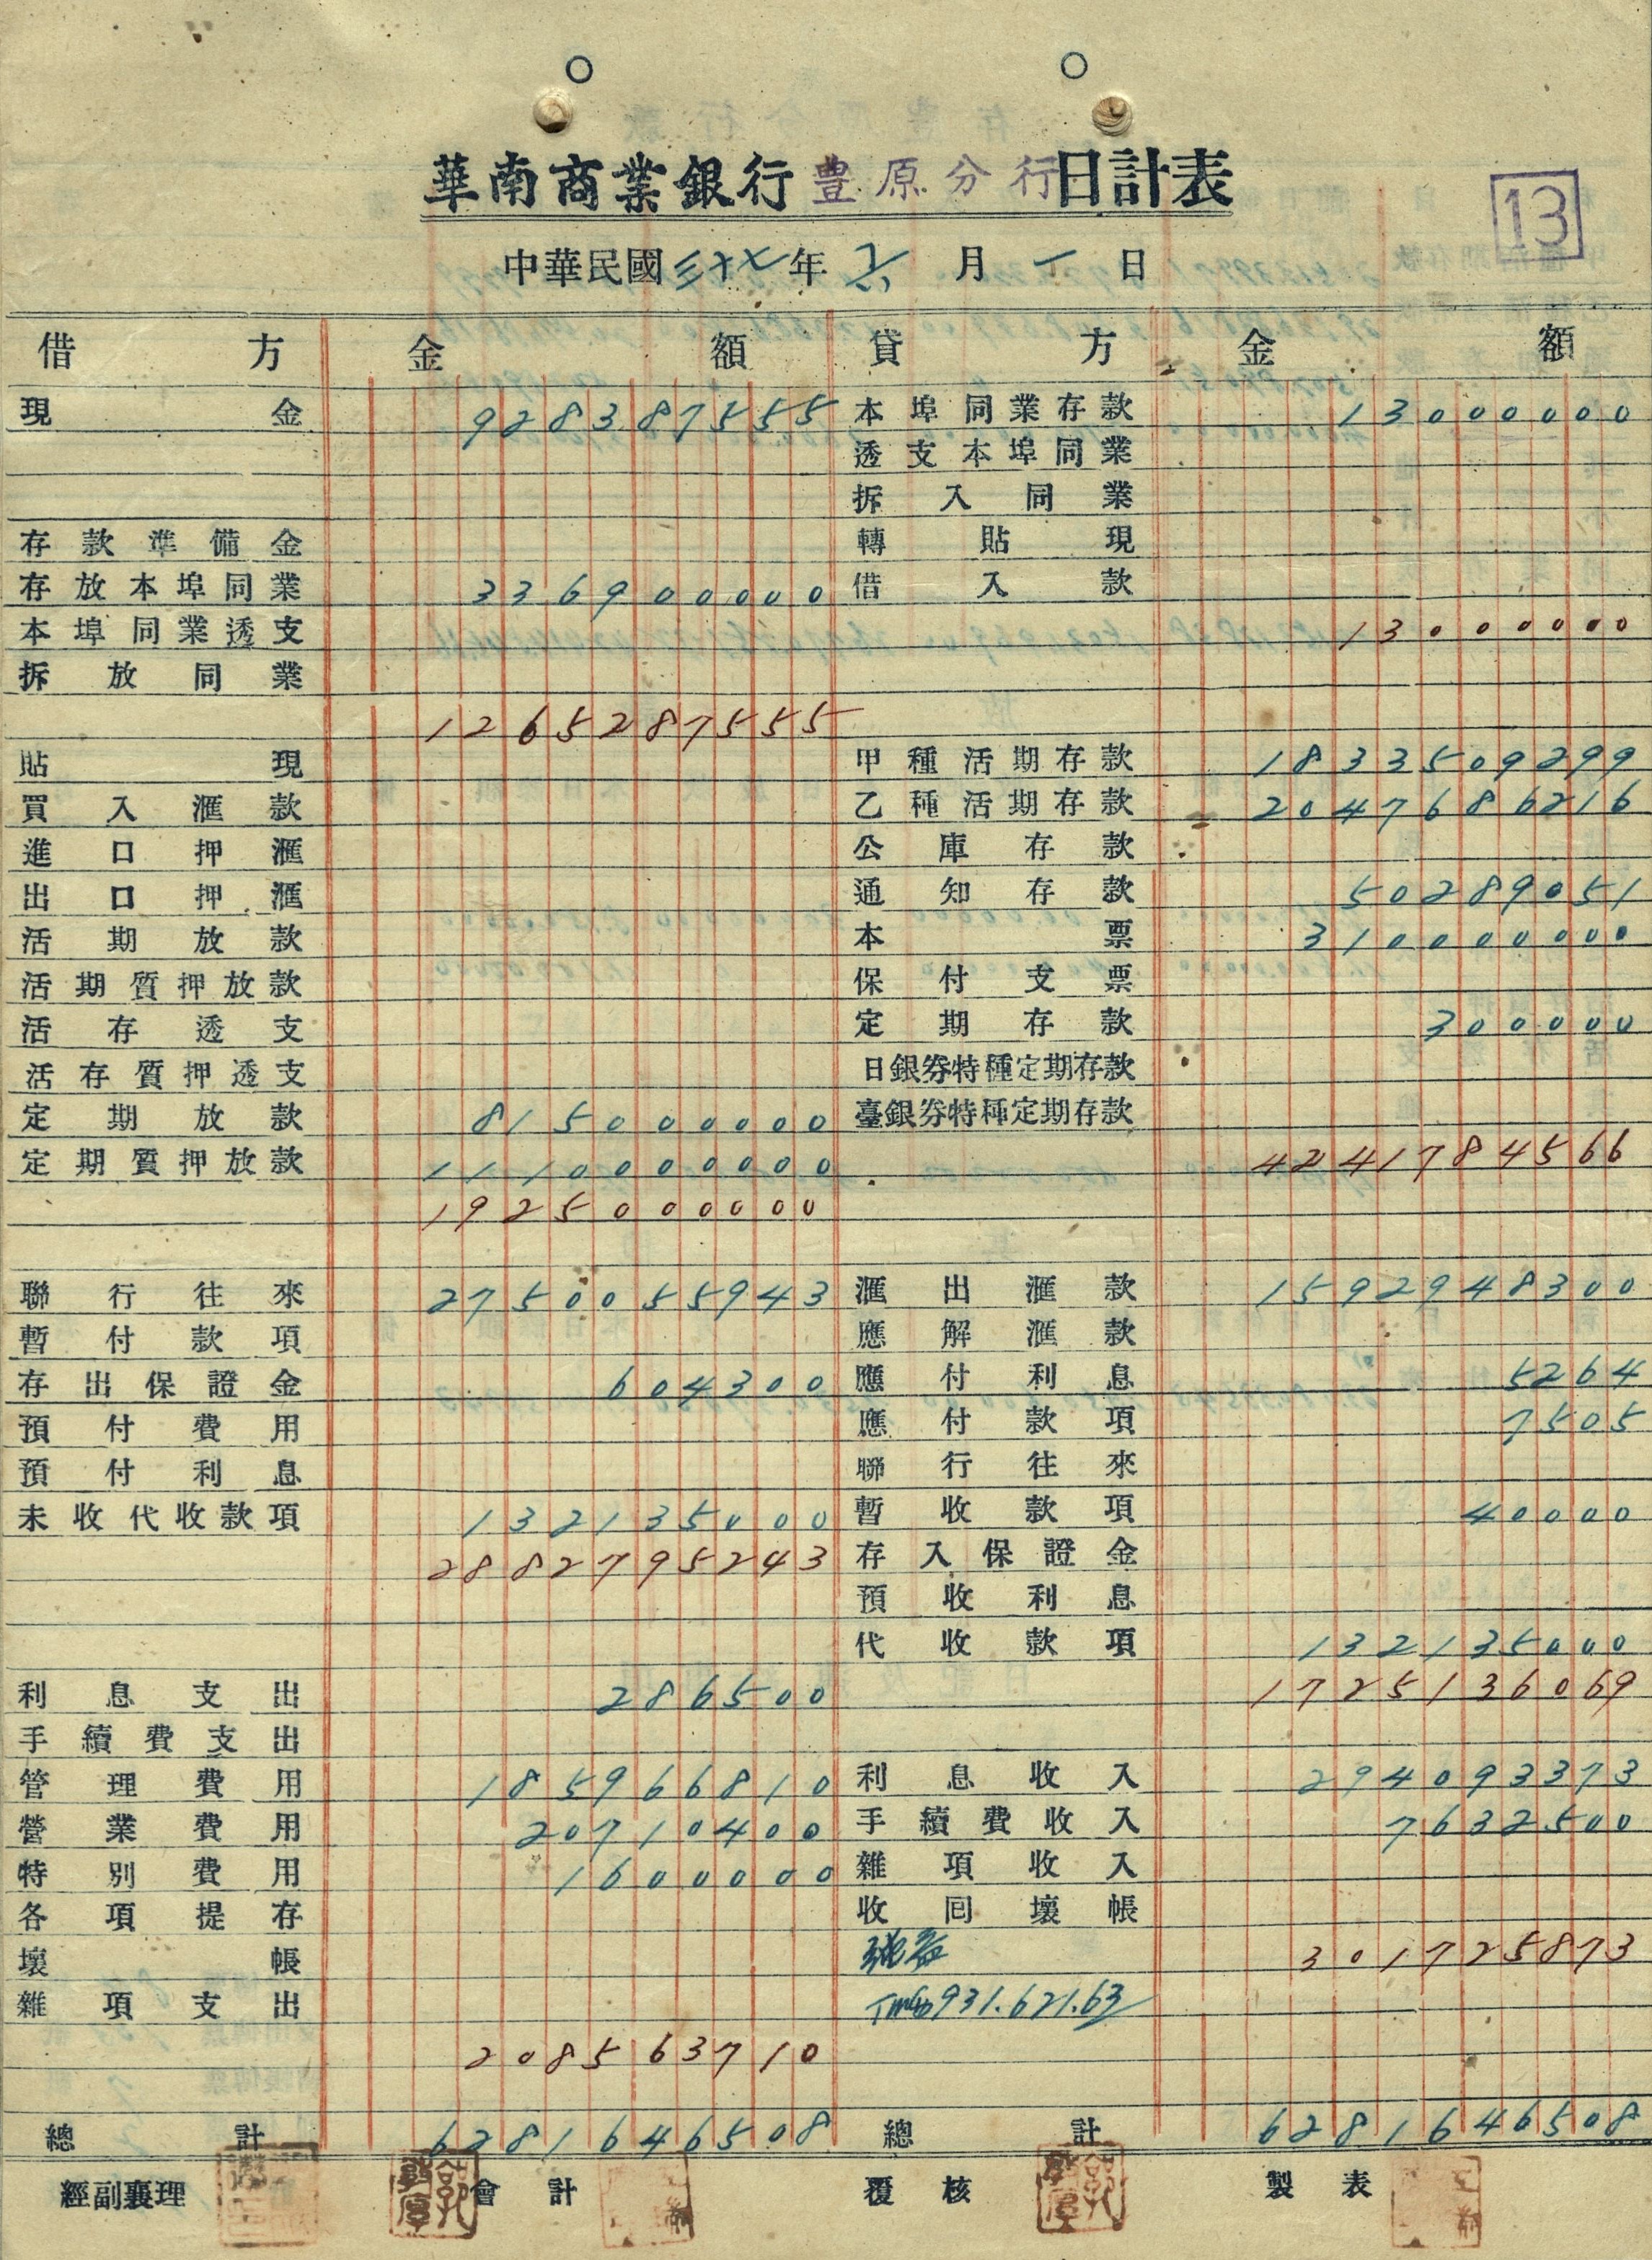 華南商業銀行豊原分行日計表
13
中華民國三十七年六月一日
借方 金額 貸方 金額
現金 928387555 本埠同業存款 13000000
透支本埠同業
拆入同業
存款準備金 轉貼現
存放本埠同業 336900000 借入款
本埠同業透支 13000000
拆放同業
1265287555
貼現 甲種活期存款 1833509299
買入滙款 乙種活期存款 2047686216
進口押滙 公庫存款
出口押滙 通知存款 50289051
活期放款 本票 310000000
活期質押放款 保付支票
活存透支 定期存款 300000
活存質押透支 日銀券特種定期存款
定期放款 815000000 臺銀券特種定期存款
定期質押放款 1110000000 4241784566
1925000000
聯行往來 2750055943 滙出滙款 1592948300
暫付款項 應解滙款
存出保證金 604300 應付利息 5264
預付費用 應付款項 7505
預付利息 聯行往來
未收代收款項 132135000 暫收款項 40000
2882795243 存入保證金
預收利息
代收款項 132135000
利息支出 286500 1725136069
手續費支出
管理費用 185966810 利息收入 294093373
營業費用 20710400 手續費收入 7632500
特別費用 1600000 雜項收入
各項提存 收回壞帳
壞帳 純益 301725873
雜項支出 931.621.63
208563710
總計 6281646508 總計 6281646508
經副襄理 會計 覆核 製表